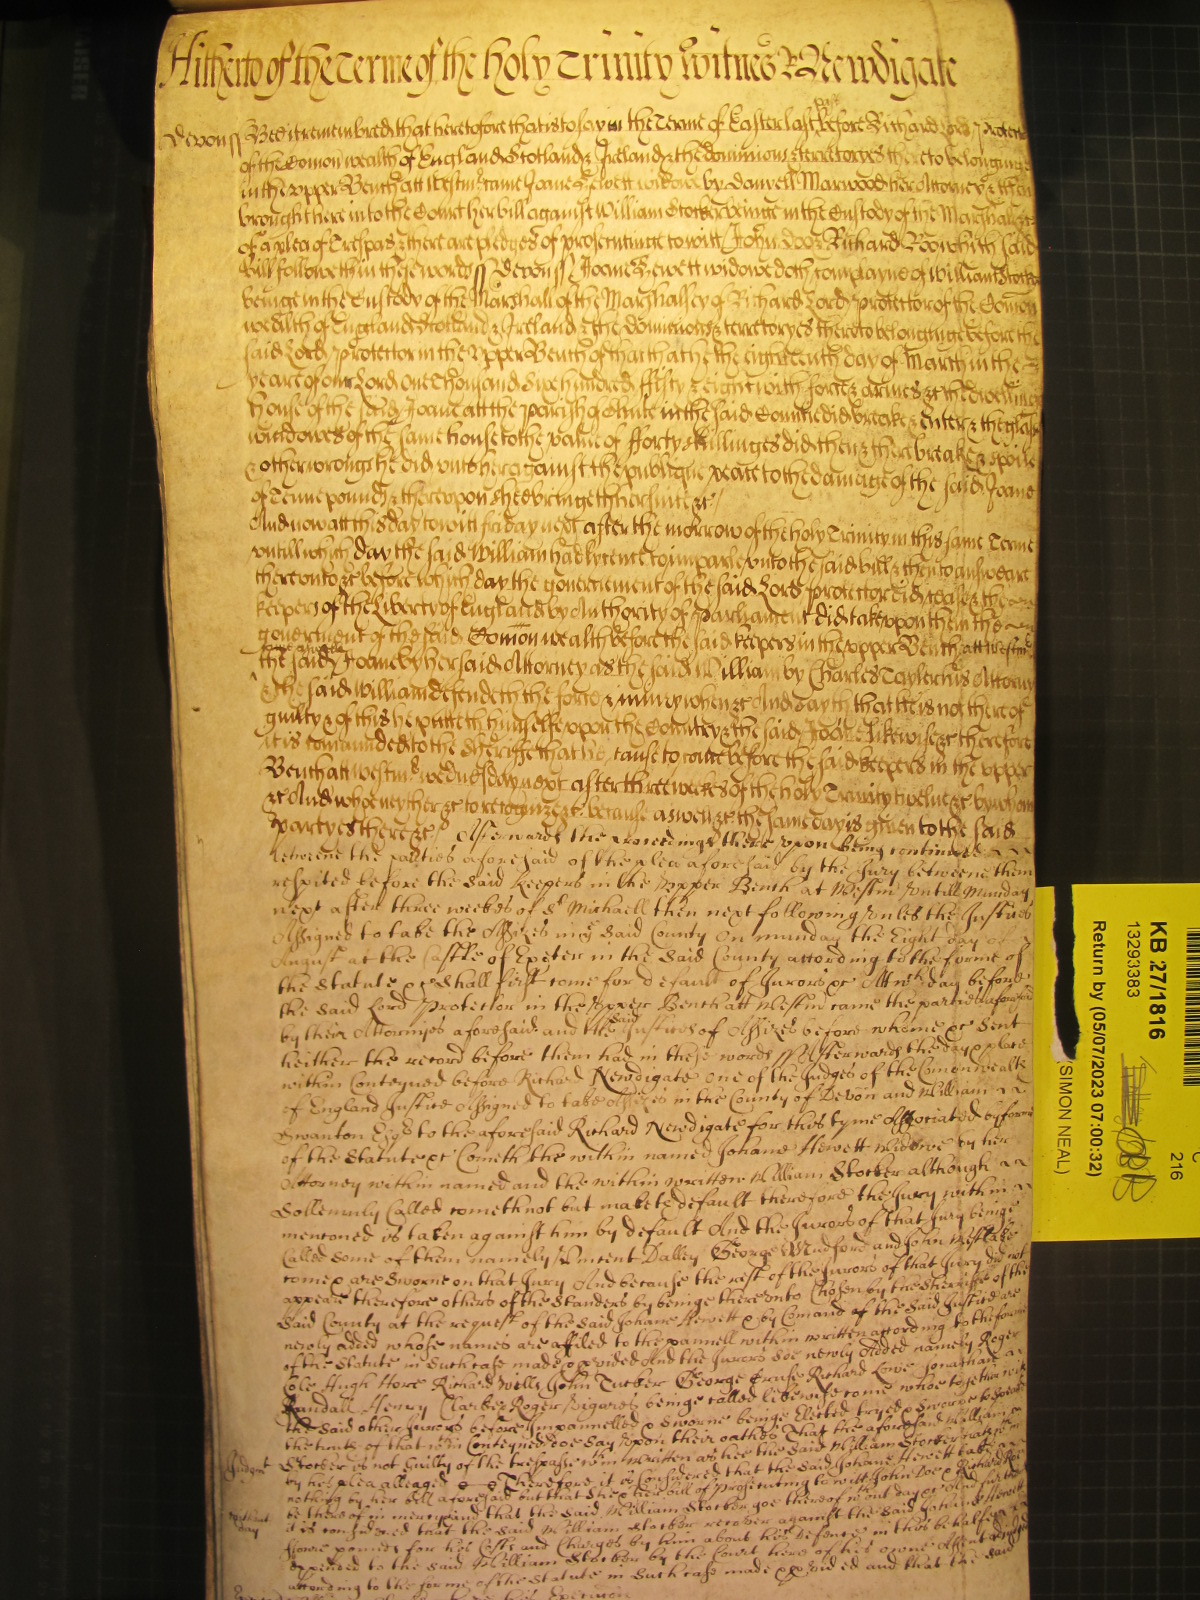 Hitherto of the Terme of the holy Trinity witnes R Newdigate
Devon ss Bee it remembred that heretofore that is to say in the Terme of Easter last past before Richard Lord Protector
of the Comon wealth of England Scotland & Ireland & the dominions & terretoryes thereto belonginge
in the upper Bench att Westmr came Joane Hewett widowe by Danyell Marwood her Attorney & then
brought here into the Court her bill against William Stocker beinge in the Custody of the Marshall &c
of a plea of Trespas & there are pledges of prosecutinge to witt John Doo & Richard Roo which said
Bill followeth in these words ss Devon ss Joane Hewett widowe doth complayne of William Stocker
beinge in the Custody of the Marshall of the Marshalsey of Richard Lord protector of the Comon
wealth of England Scotland & Ireland & the dominions & terretoryes thereto belonginge before the
said Lord Protector in the Upper Bench of that that he the eighteenth day of March in the
yeare of our Lord one Thousand Sixe hundred fifty & eight with force & armes &c the dwellinge
house of the said Joane att the parish of Chute in the said Countie did breake & enter & the glasse
windowes of the same house to the value of fforty shillinges did then & there breake & spoile
& other wrongs he did unto her against the publique peace to the damage of the said Joane
of Tenne pounds & thereupon shee bringeth her suite &c
And now att this day to witt friday next after the morrow of the holy Trinity in this same Terme
untill which day the said William had lycence to imparle unto the said bill & then to answeare
thereunto &c before which day the government of the said Lord protector did cease & the
keepers of the Liberty of England by Authority of Parliament did take upon them the
goverment of the said Comon wealth before the said keepers in the upper Bench att Westmr
came aswell
the said Joane by her said Attorney as the said William by Charles Taylor his Attorney
& the said William defendeth the force & iniury when &c And sayth that he is not thereof
guilty & of this he putteth himselfe upon the Country & the said Joane likewise &c therefore
it is comaunded to the Sheriffe that he cause to come before the said keepers in the upper
Bench att Westmr wednesday next after three weekes of the holy Trinity twelve &c by whom
&c And who neyther &c to recognize &c because aswell &c the same day is given to the said
partyes there &c Afterwards the proceedings there upon being continued
betweene the parties aforesaid of the plea aforesaid by the Jury betweene them
respited before the said keepers in the upper Bench at Westmr untill Munday
next after three weekes of St Michaell then next following unles the Justices
Assigned to take the Assizes in the said County on munday the Eight day of
August at the Castle of Exeter in the said County according to the forme of
the Statute &c shall first come for default of Jurors &c Att which day before
the said Lord Protector in the Upper Bench att Westmr came the parties aforesaid
by their Attornyes aforesaid and the said Justices of Assizes before whome &c sent
heither the record before them had in these words ss Afterwards the day & place
within Conteyned before Richard Newdigate one of the Judges of the Comonwealth
of England Justice Assigned to take Assizes in the County of Devon and William
Swanton Esqr to the aforesaid Richard Newdigate for this tyme Associated by forme
of the Statute &c Cometh the within named Johane Hewett Widowe by her
Attorney within named and the within written William Stocker although
Sollemnly Called cometh not but maketh default therefore the Jury within
mencioned is taken against him by default And the Jurors of that Jury beinge
Called some of them namely Vincent Dalley George Mudford and John Westlake
come & are Sworne on that Jury And because the rest of the Jurors of that Jury did not
appeare therefore others of the Standers by beinge thereunto Chosen by the Sherriffe of the
said County at the request of the said Johane Hewett & by Comand of the said Justice are
newly added whose names are affiled to the pannell within written according to the forme
of the Statute in Such case made & provided And the Jurors soe newly Added namely Roger
Cole Hugh Hore Richard Wills John Tucker George Cruse Richard Lowe Jonathan
Randall Henry Clarke & Roger Sigures beinge called likewise come whoe together with
the said other Jurors before Impannelled & sworne beinge Elected tryed & sworne to speake
the truth of that within Conteyned doe say upon their oathes That the aforesaid William
Stocker is not Guilty of the trespasse within written as hee the said William Stocker
Judgmt
by his plea alleaged Therefore it is Considered that the said Johane Hewett take
nothing by her bill aforesaid but that shee & her of prosecuting to witt John Doe & Richard Roe
be thereof in mercy and that the said William Stocker goe thereof without day &c And further
without day
it is considered that the said William Stocker recover against the said Johane Hewett
pounds for his Costs and Charges by him about his defence in this behalfe
expended to the said William Stocker by the Court here of his owne Assent
according to the forme of the Statute in Such case made & provided and that the said
Execution
KB 27/1816
13293383
Return by (05/07/2023 07:00:32)
(SIMON NEAL)
216